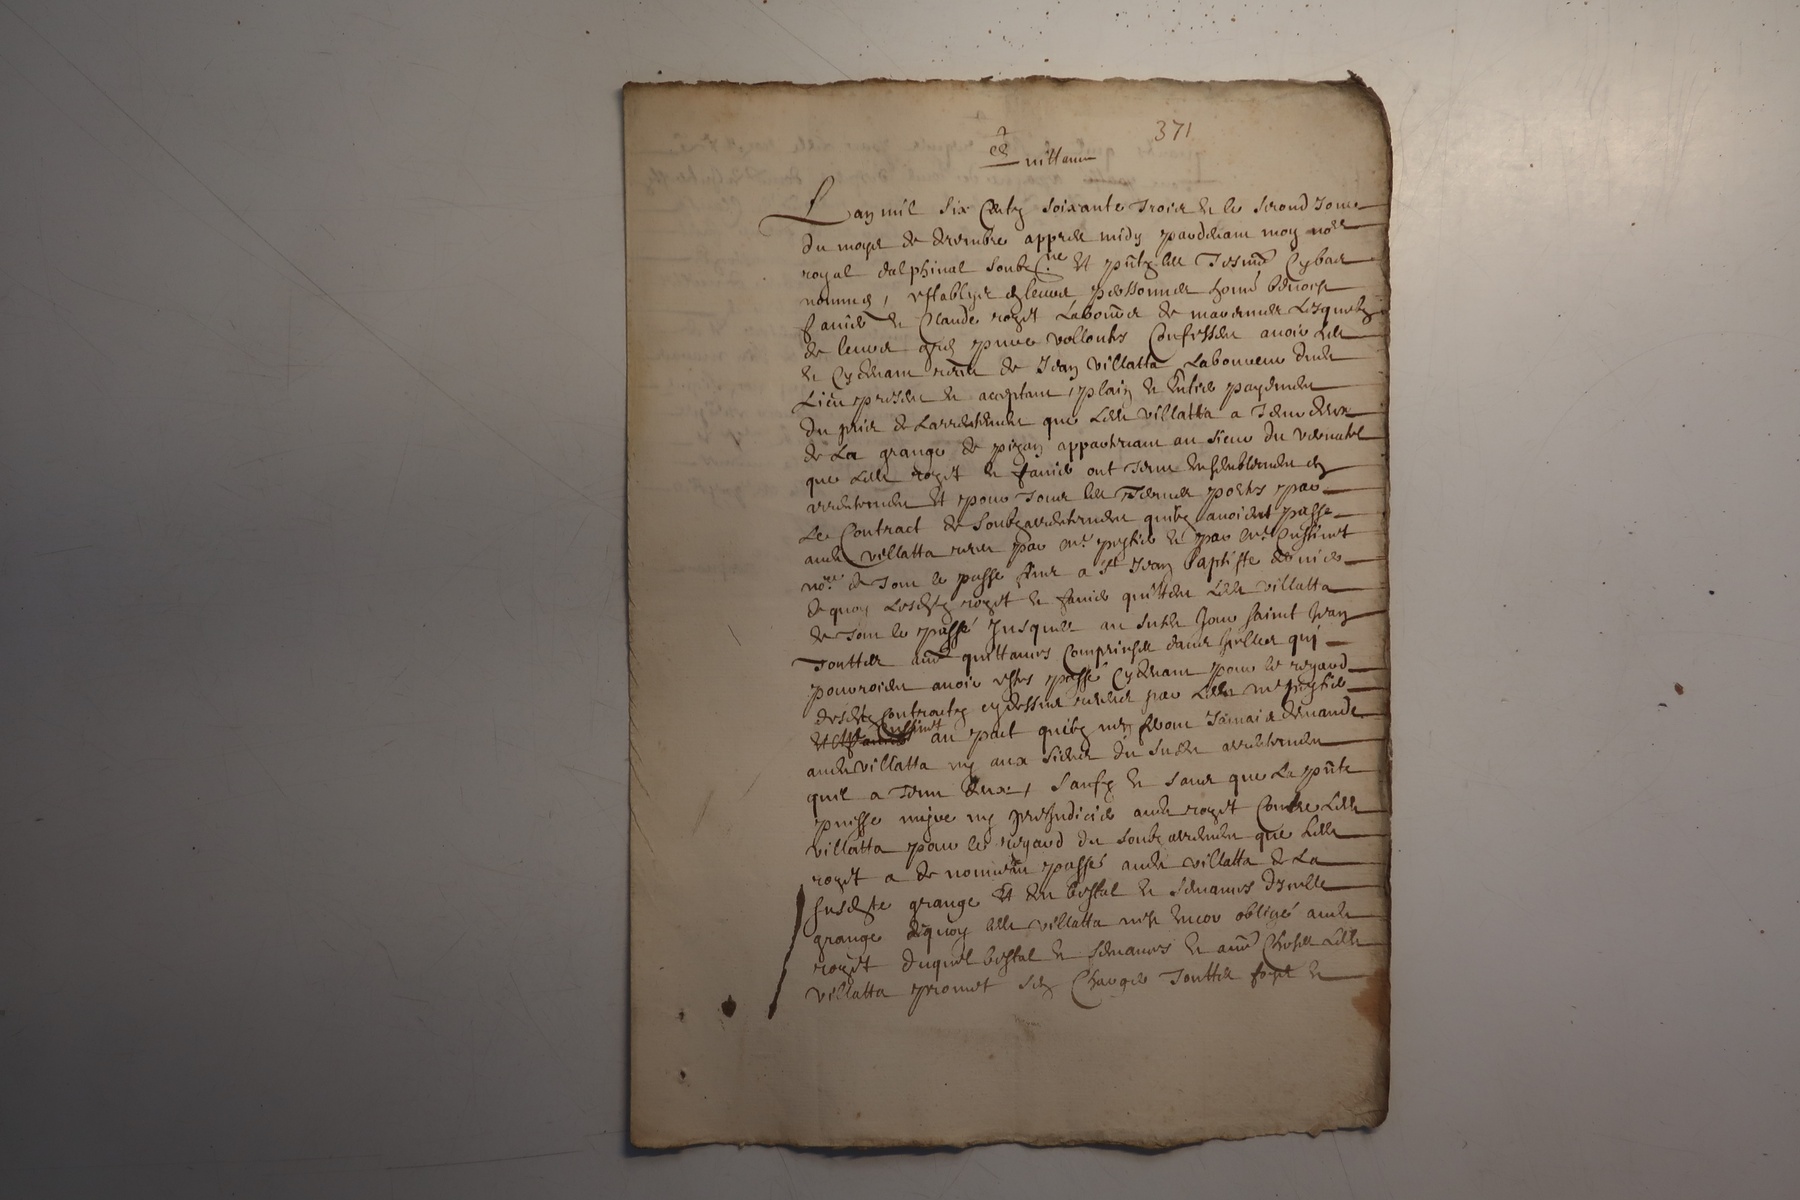 371
Quittance
L'an mil six centz soixante trois et le second jour
du moys de decembre appres midy pardevant moy no.re
royal dalphinal soubz.né et p̃ntz les tesmoins cy bas
nommés, establys en leurs personnes honn.
et Claude rozet laboureurs de lesquelz
de leurs grés pures vollontés confessent avoir
et cy devant receu de Jean villatta laboureur dud.
Lieu present et acceptant, plain et entier payement
du prix de Larrentement que Led. villatta a tenu
de La grange de appartenant au sieur du
que Led. rozet et ont tenu ensemblement en
arrentement et pour tous les termes portés par
Le Contract de soubzarrentement quilz avoient passé
aud. villatta receu par m.e et par m.e Cussinet
no.re de tout le passé jusques a S.t Jean Baptiste dernier
de quoy Lesd. rozet et quittent Led. villatta
de tout le passé Jusques au susd. Jour saint Jean
touttes aud. quittances comprinses dans icelles qui
pourroient avoir estés passé cy devant pour le regard
desd. contractz cy dessus receus par Led. m.e
Cussinet au pact quilz n'en feront Jamais demande
aud. villatta ny aux sieurs du susd. arrentement
quil a tenu d'eux, sauf et sans que La p̃nte
puisse nuyre ny prejudicier aud. rozet Contre Led.
villatta pour le regard du soubzarrentement que Led.
rozet a de nouveau passé aud. villatta de La
susd. grange et du bestal et semances d'icelle
grange de quoy led. villatta rest encor obligé aud.
rozet duquel bestal et semances et autres choses Led.
villatta promet s'en charger touttes foys et